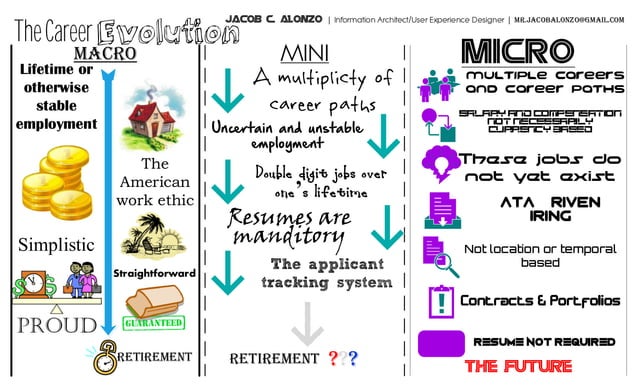 The Career Evolution
JACOB C. ALONZO | Information Architect/User Experience Designer | MR.JACOBALONZO@GMAIL.COM
MACRO
Lifetime or
otherwise
stable
employment
The
American
work ethic
Simplistic
Straightforward
$ $
PROUD
GUARANTEED
RETIREMENT
MINI
A multiplicty of
career paths
Uncertain and unstable
employment
Double digit jobs over
one's lifetime
Resumes are
manditory
The applicant
tracking system
RETIREMENT ???
MICRO
MULTIPLE CAREERS
AND CAREER PATHS
SALARY AND COMPENSATION
NOT NECESSARILY
CURRENCY BASED
These jobs do
not yet exist
ATA RIVEN
IRING
Not location or temporal
based
Contracts & Portfolios
RESUME NOT REQUIRED
THE FUTURE